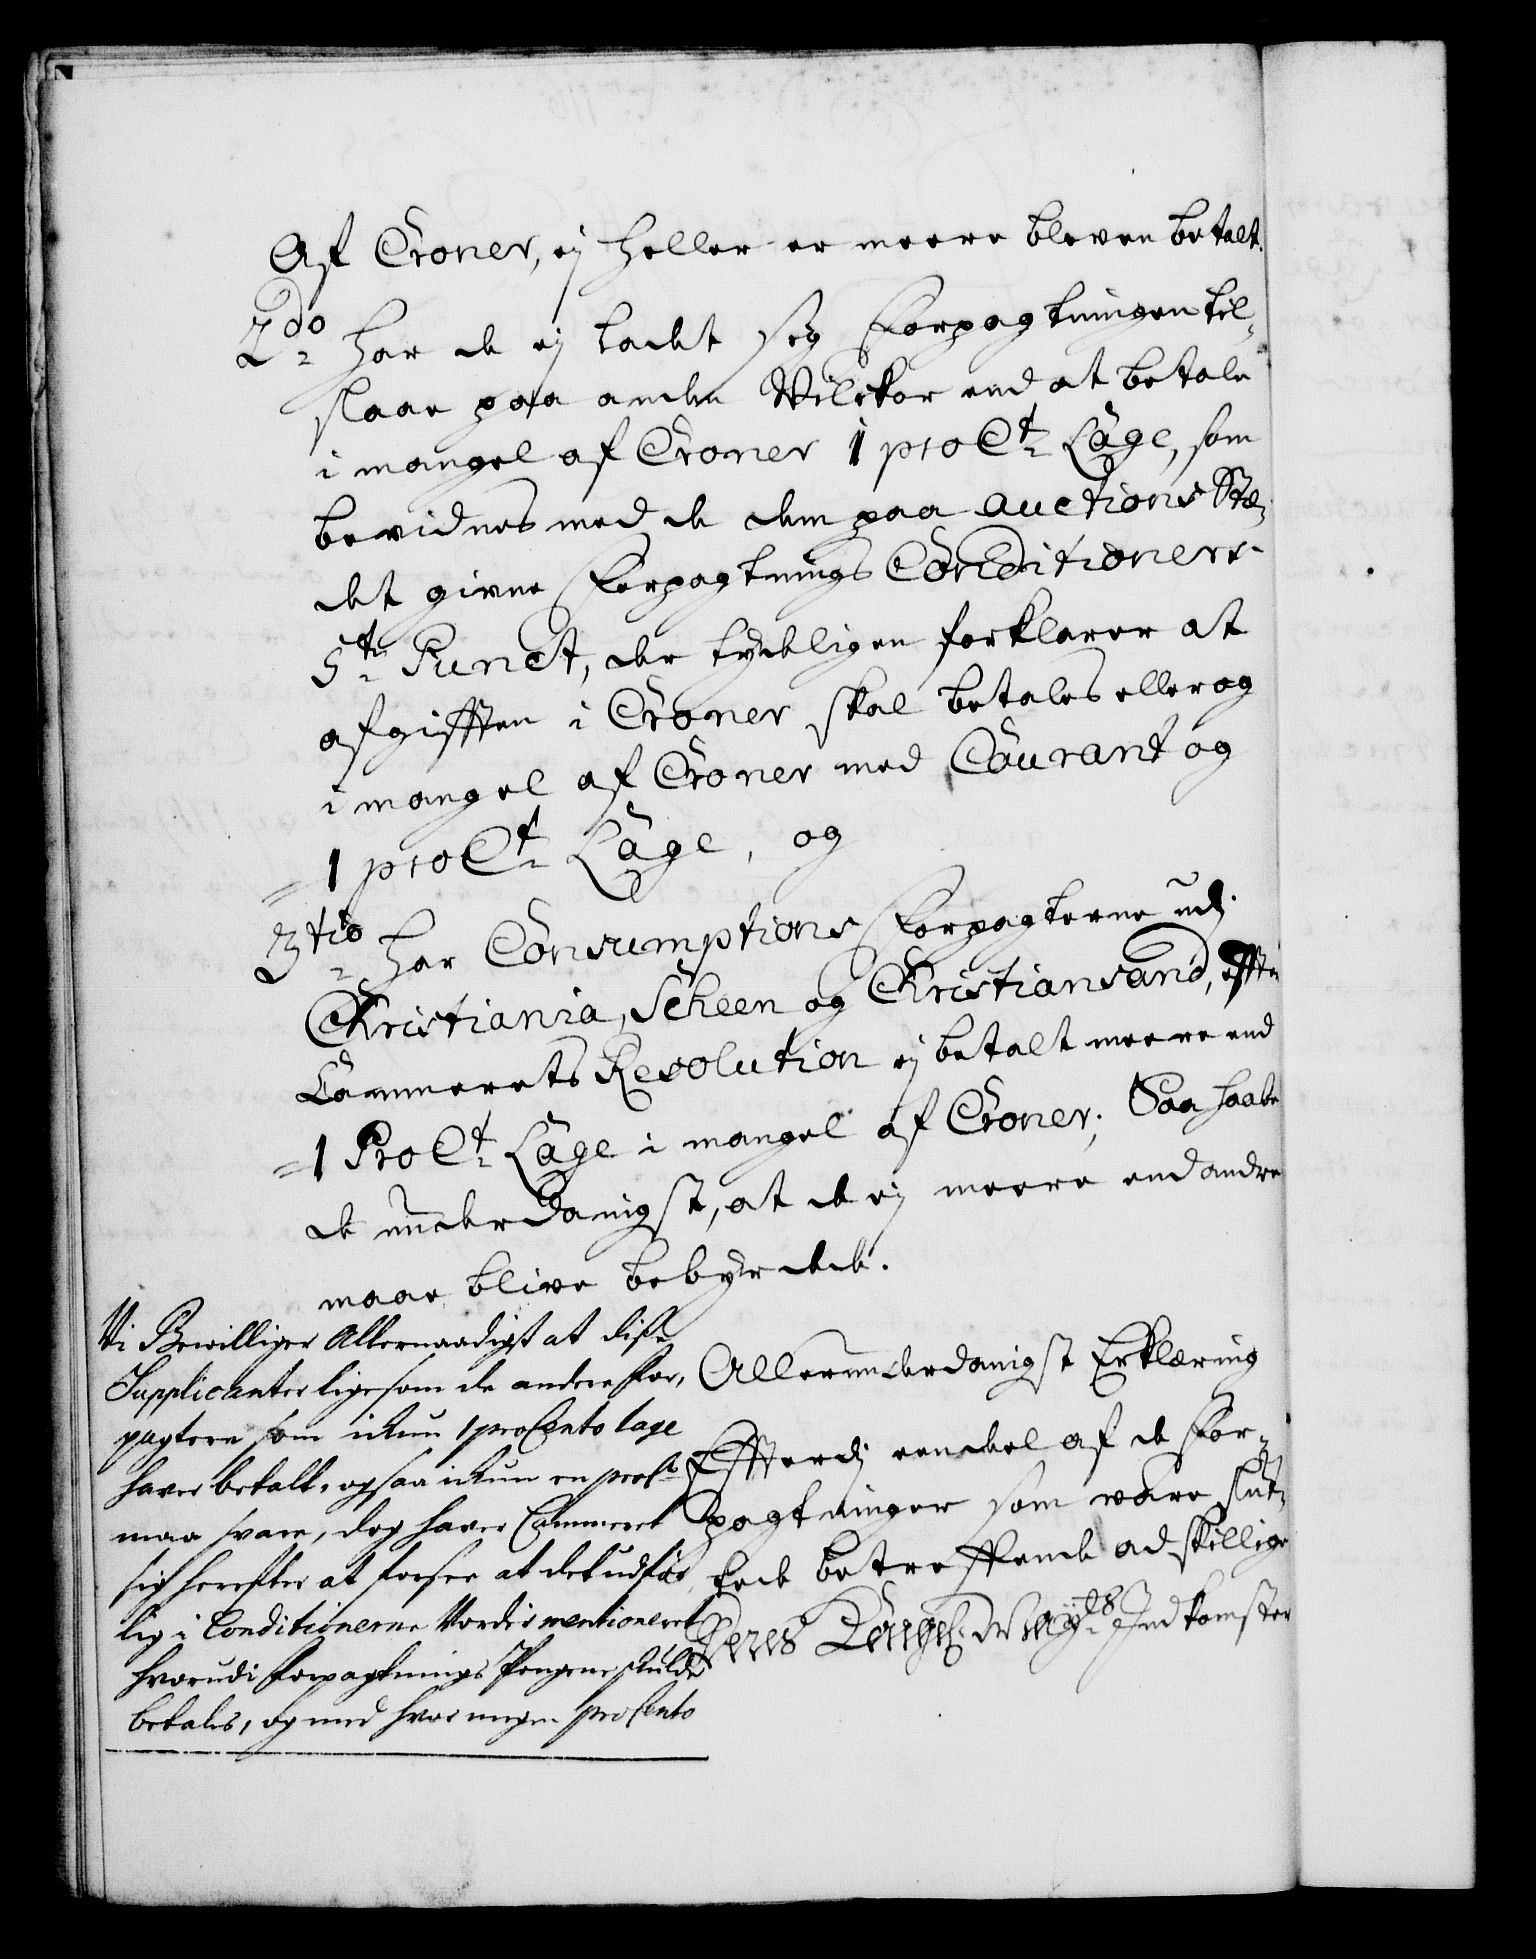 Af Croner, ej heller er meere bleven betalt.
2do har de ej ladet sig Forpagtningen til-
slaae paa anden Vilckor end at betale
i mangel af Croner 1 pro Ct Lage, som
bevidnes med de dem paa Auctions Stæ-
det givne Forpagtnings Conditioners
5te Punct, der tydeligen forklarer at
afgifften i Croner skal betales eller og
i mangel af Croner med Courant og
1 pro Ct Lage, og
3tio har Consumptions Forpagterne udj
Christiania, Scheen og Christiansand, effter
Cammerets Resolution ej betalt meere end
1 Pro Ct Lage i mangel af Croner; Saa haabe
de underdanigst, at de ej meere end andre
maae blive bebyrdede.
Vi Bewilliger Allernaadigst at disse
Supplicanter ligesom de andere For-
pagtere som ickun 1 pro Cento lage
haver betalt, ogsaa ickun en pro Ct
maa svare, dog haver Cammeret
sig herefter at forsee at det udfør-
lig i Conditionerne Vorder mentioneret
hvorudi Forpagtnings Pengene skulde
betales, og med hvor megen pro Cento
Allerunderdanigst Erklæring
Effterdj eendeel af de For-
pagtninger som vare slut-
tede betreffende adskillige
Deres Kongl. Mayts Indkomster